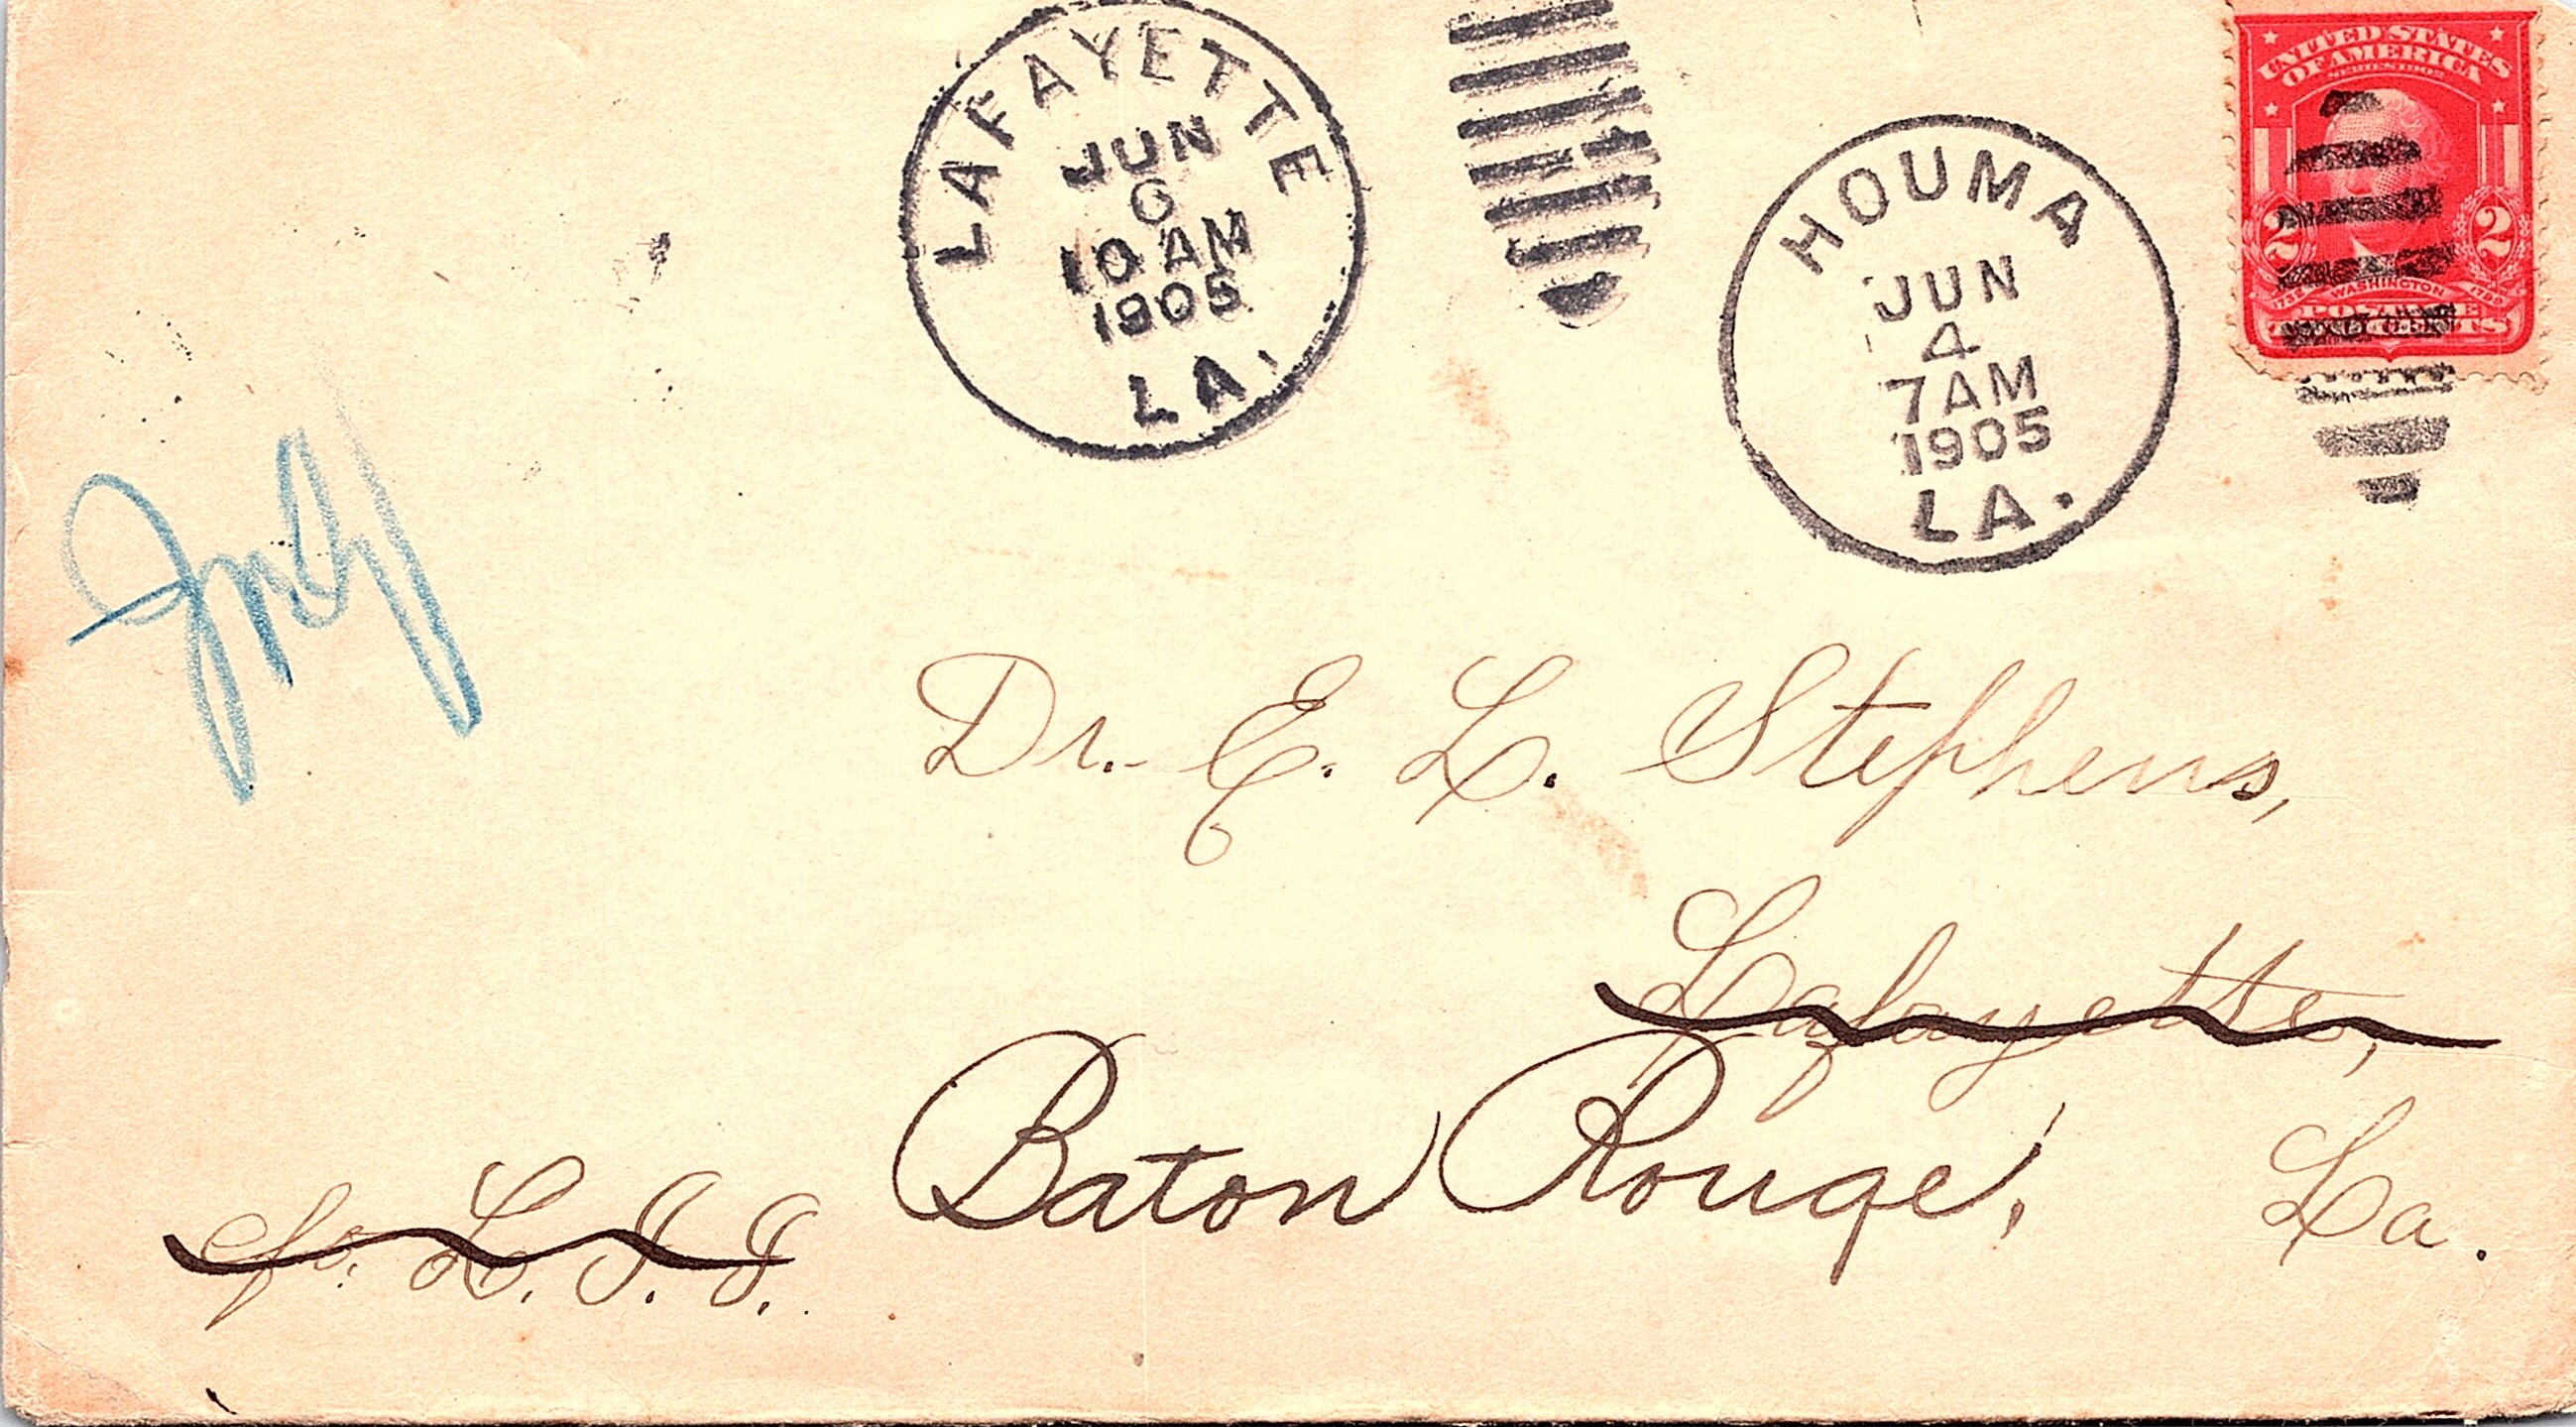 LAFAYETTE
JUN
6
10 AM
1905
LA.
HOUMA
JUN
4
7 AM
1905
LA.
UNITED STATES
OF AMERICA
SERIES 1902
2 2
1732 WASHINGTON 1799
POSTAGE
TWO CENTS
Dr. E. L. Stephens,
Lafayette,
Baton Rouge, La.
c/o. L. I. I.